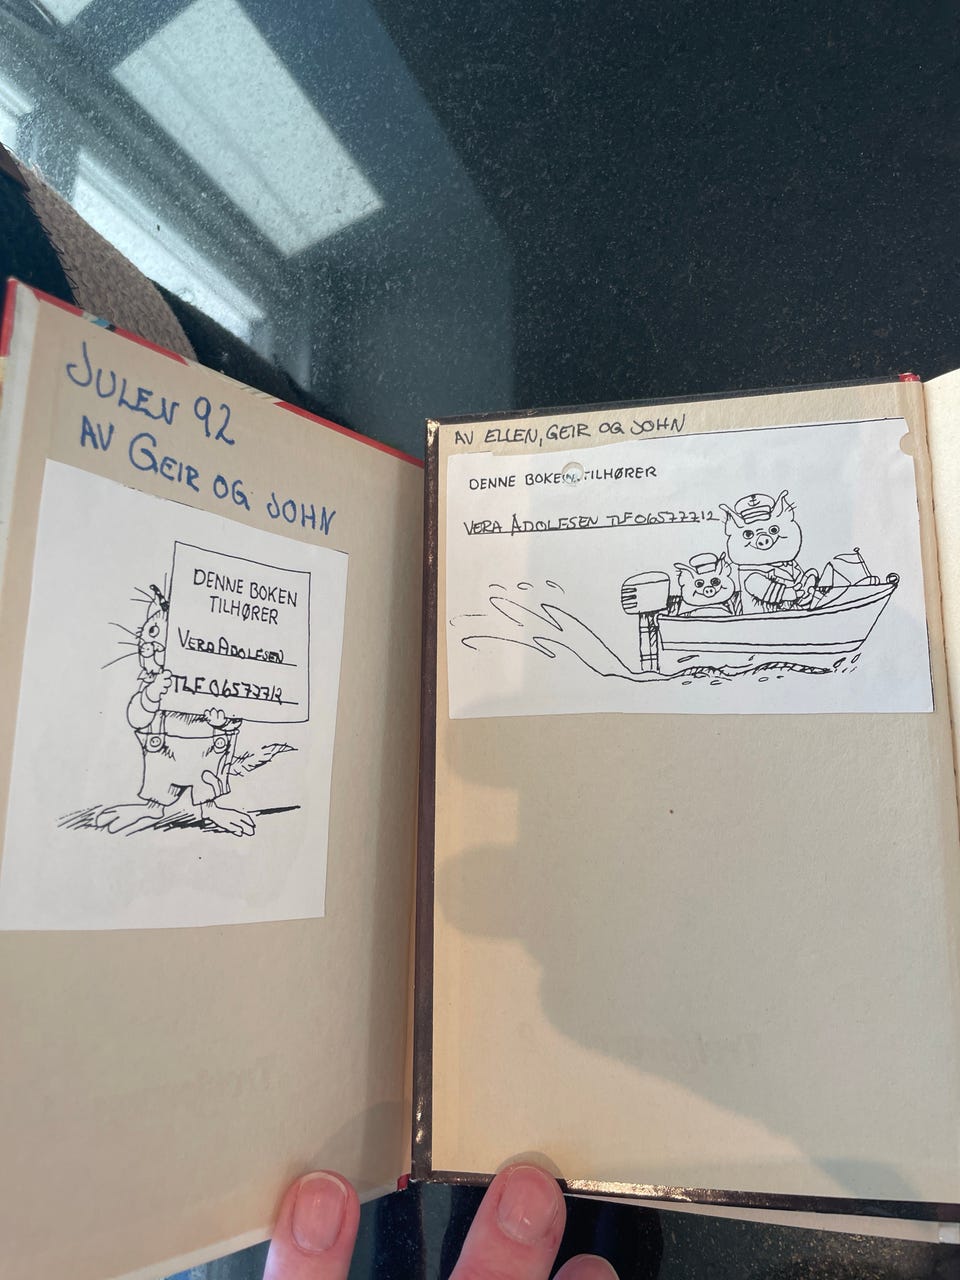 JULEN 92
AV GEIR OG JOHN
DENNE BOKEN
TILHØRER
VERA ADOLFSEN
TLF 06577712
AV ELLEN, GEIR OG JOHN
DENNE BOKEN TILHØRER
VERA ADOLFSEN TLF 06577712